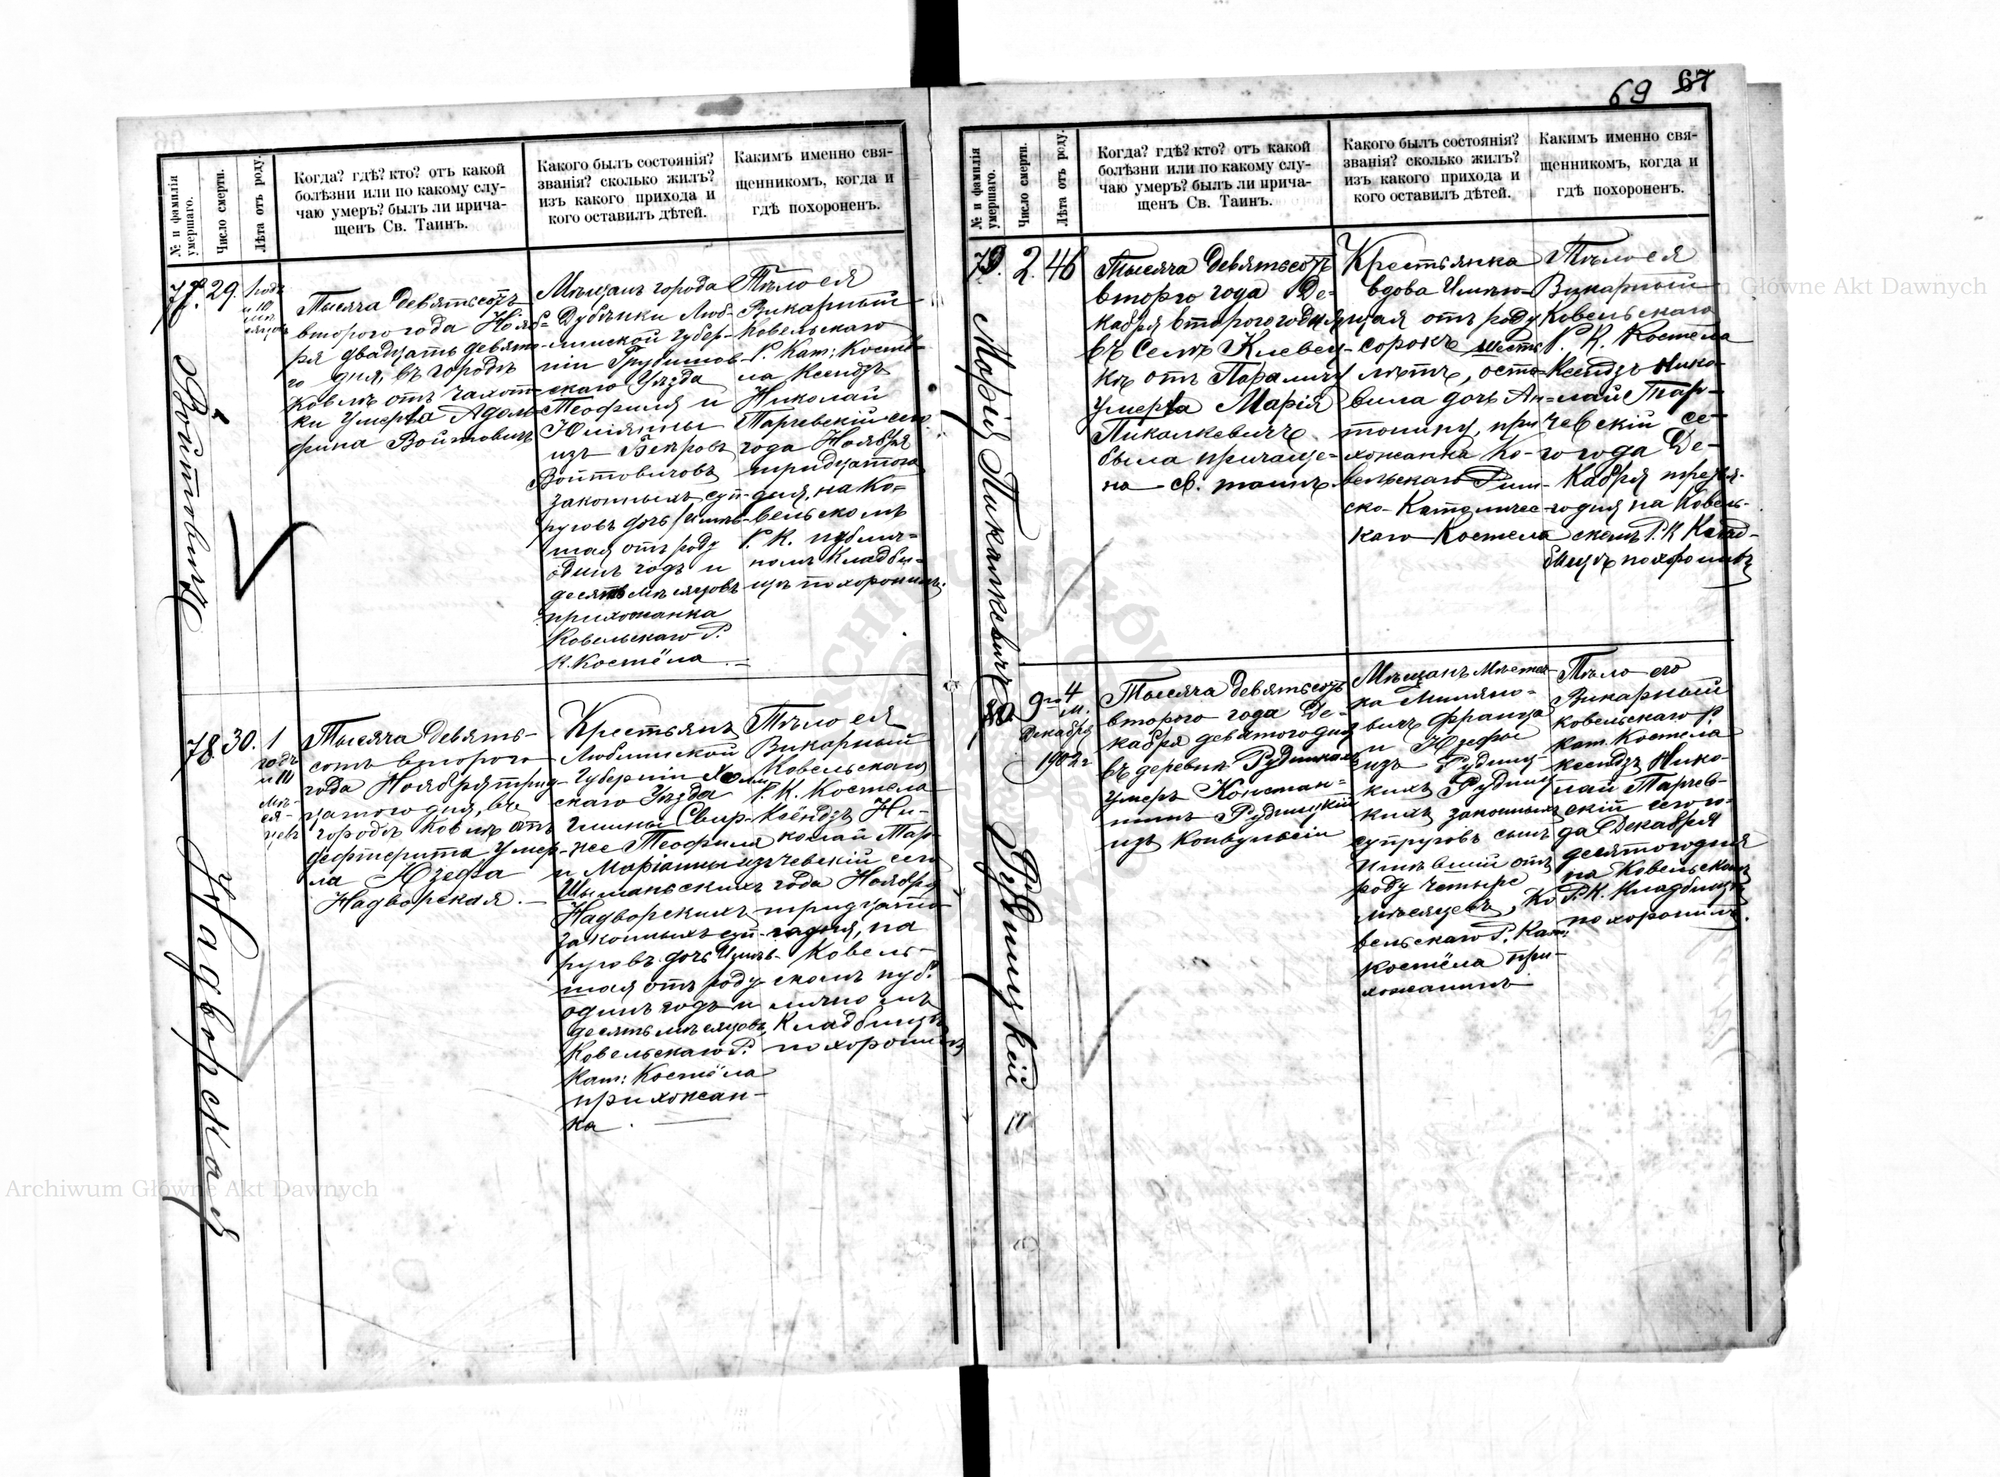 69 67
№ и фамилія умершаго.
Число смерти.
Лѣта отъ роду.
Когда? гдѣ? кто? отъ какой
болѣзни или по какому слу-
чаю умеръ? былъ ли прича-
щенъ Св. Таинъ.
Какого былъ состоянія?
званія? сколько жилъ?
изъ какого прихода и
кого оставилъ дѣтей.
Каким​ъ именно свя-
щенникомъ, когда и
гдѣ похороненъ.
77.
Войтовичъ
29.
1 годъ
и 10
мѣ-
сяцовъ
Тысяча девятьсотъ
второго года Нояб-
ря двадцать девято-
го дня, въ городѣ
Ковлѣ отъ чахот-
ки умерла Адоль-
фина Войтовичъ
Мѣщанъ города
Дубенки Люб-
линской Губер-
ніи Грубешов-
скаго Уѣзда
Теофиля и
Юліянны
изъ
Войтовичовъ
законныхъ суп-
руговъ дочь, имѣв-
шая отъ роду
одинъ годъ и
десять мѣсяцовъ
прихожанка
Ковельскаго Р.
К. Костёла.
Тѣло ея
Викарный
Ковельскаго
Р. Кат: Костё-
ла Ксендзъ
Николай
Тарчевскій сего
года Ноября
тридцатого
дня, на Ко-
вельскомъ
Р. К. публич-
номъ Кладби-
щѣ похоронилъ.
78.
Надворская
30.
1
годъ
и 10
мѣ-
ся-
цев
Тысяча девять-
сотъ второго
года Ноября трид-
цатого дня, въ
городѣ Ковлѣ отъ
дефтерита умер-
ла Юзефа
Надворская.
Крестьянъ
Люблинской
Губерніи Холм-
скаго Уѣзда
Гмины Свир-
же Теофиля
и Маріанны изъ
Шыманьскихъ
Надворскихъ
законныхъ суп-
руговъ дочь Имѣв-
шая отъ роду
одинъ годъ и
десять мѣсяцовъ,
Ковельскаго Р.
Кат: Костёла
прихожан-
ка.
Тѣло ея
Викарный
Ковельскаго
Р. К. Костела
Ксёндзъ Ни-
колай Тар-
чевскій сего
года Ноября
тридцато-
го дня, на
Ковель-
скомъ пуб-
личномъ
Кладбищѣ
похоронилъ
№ и фамилія умершаго.
Число смерти.
Лѣта отъ роду.
Когда? гдѣ? кто? отъ какой
болѣзни или по какому слу-
чаю умеръ? былъ ли прича-
щенъ Св. Таинъ.
Какого былъ состоянія?
званія? сколько жилъ?
изъ какого прихода и
кого оставилъ дѣтей.
Какимъ именно свя-
щенникомъ, когда и
гдѣ похороненъ.
79.
Марія Пикалкевичъ
2.
46
Тысяча девятьсотъ
второго года Де-
кабря второго дня
въ Селѣ Клевец-
кѣ отъ Параличу
умерла Марія
Пикалкевичъ.
была причаще-
на св. таинъ.
Крестьянка
вдова Имѣю-
щая отъ роду
сорокъ шесть
лѣтъ, оста-
вила дочь Ан-
тонину, при-
хожанка Ко-
вельскаго Рим-
ско-Католичес-
каго Костела
Тѣло ея
Викарный
Ковельскаго
Р. К. Костела
Ксендзъ Нико-
лай Тар-
чевскій се-
го года Де-
кабря третья-
го дня на Ковель-
скомъ Р. К. Клад-
бищѣ похоронилъ
80.
Рудницкій
9го
Декабря
1902 г
4
м.
Тысяча девятьсотъ
второго года Де-
кабря девятого дня
въ деревни
умеръ Констан-
тинъ Рудницкій
изъ Конвульсіи
Мѣщанъ Мѣстеч-
ка
Франца
и Юзефы
изъ Рудниц-
кихъ Рудниц-
кихъ законныхъ
супруговъ сынъ
Имѣвшій отъ
роду четыре
мѣсяцевъ, Ко-
вельскаго Р. Кат:
костёла при-
хожанинъ
Тѣло его
Викарный
Ковельскаго Р.
Кат. Костела
Ксендзъ Нико-
лай Тарчев-
скій сего го-
да Декабря
десятого дня
на Ковельскомъ
Р. К. Кладбищѣ
похоронилъ.
Archiwum Główne Akt Dawnych
Archiwum Główne Akt Dawnych